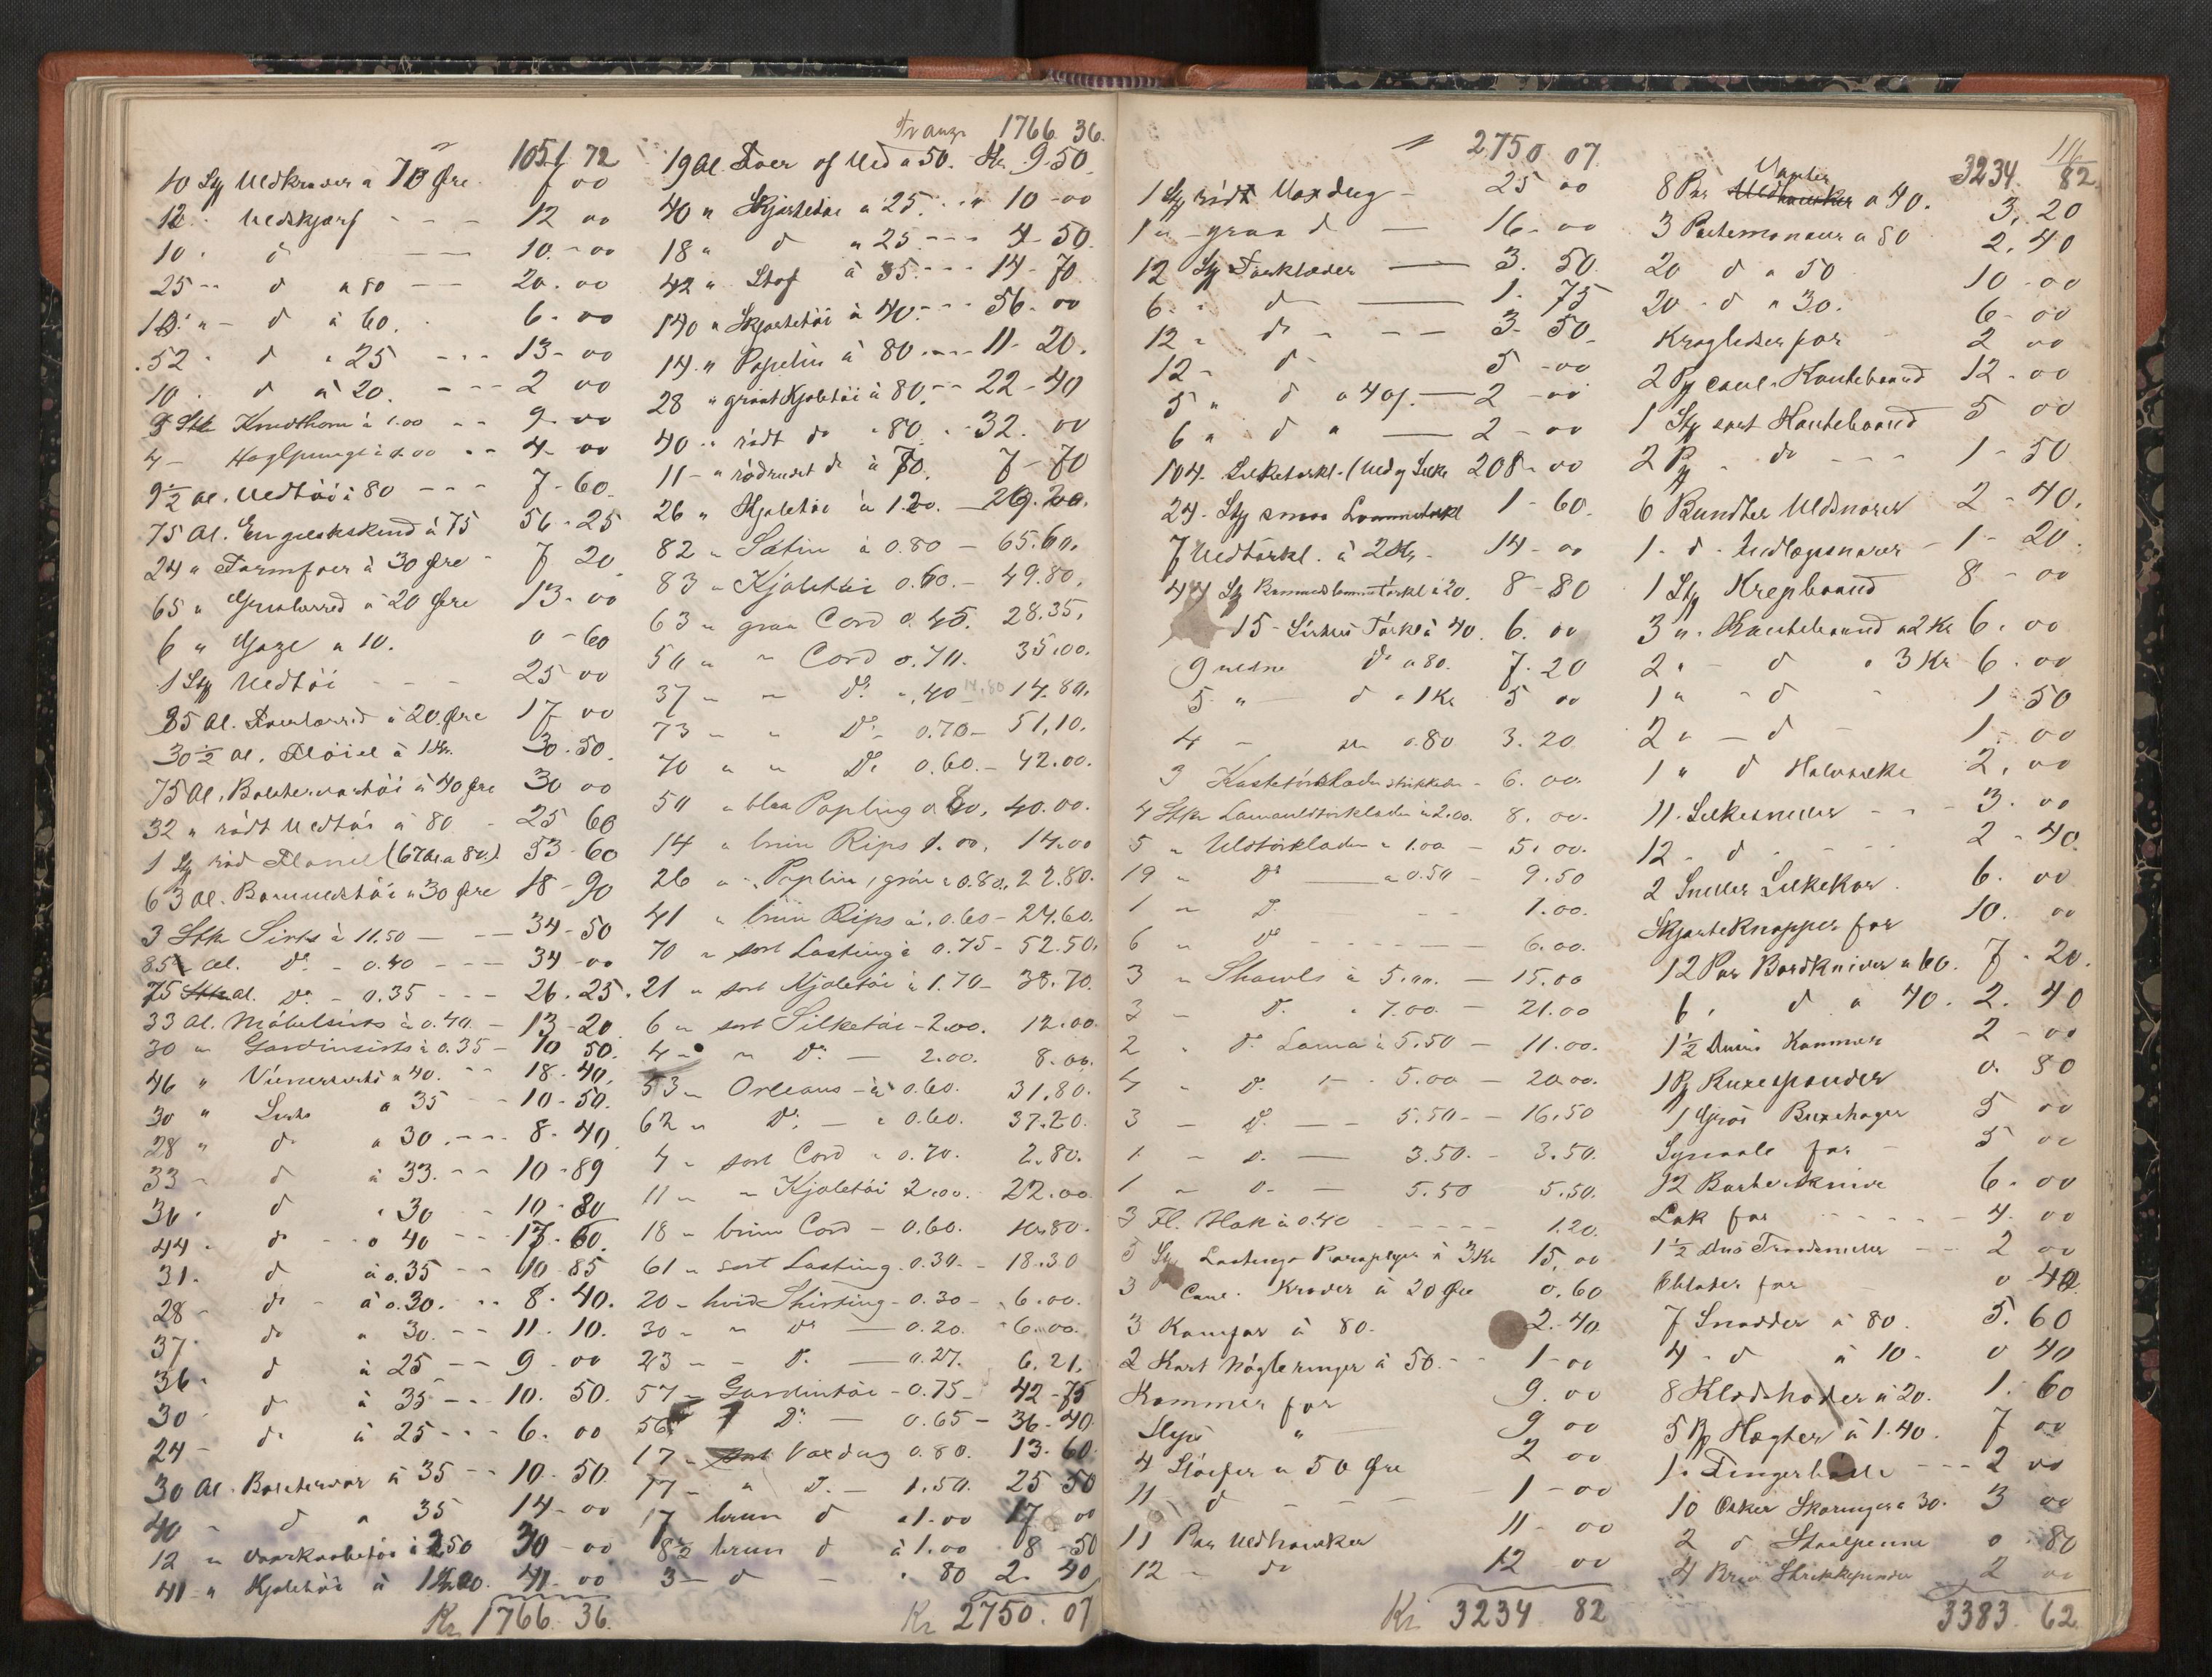 " 1051 72
10 Stk Uldkraver a 70 Øre 7 00
12 " Uldskjærf - - - 12 00
10 " d - - 10 - 00
25 - - d a 80 - - 20 . 00
10 " - d à 60 . 6 - 00
52 " d " 25 - - - 13 - 00
10 . d à 20 . - - - 2 00
9 Stk à 1.00 - - 9 - 00
4 - Haglpunge à 1.00 - - 4 - 00
9½ Al. Uldtöi à 80 - - - 7 - 60
75 Al. Engelskskind à 75 56 - 25
24 " à 30 Øre - 7 20
65 " à 20 Øre 13 - 00
6 " Gaze a 10. 0 - 60
1 Stk Uldtöi - - - 25 00
85 Al. à 20 Øre 17 00
30½ Al. Flöiel à 1 Kr. 30 - 50
75 Al. Bolstervarstöi à 40 Øre 30 00
32 " rödt Uldtöi a 80 - 25 60
1 Stk röd Flanel (67 Al. a 80.) 53 - 60
63 Al. Bomuldstöi a 30 Øre 18 - 90
3 Stk Sirts à 11.50 — — 34 - 50
85 - Al. Do - 0.40 - - - 34 - 00
75 Al. Do - 0.35 - - - 26 . 25
33 Al. Möbelsirts à 0.40 - 13 - 20
30 " Gardinsirts à 0.35 - 10 50.
46 " a 40. - - 18 - 40.
30 " Sirts a 35 - - 10 - 50.
28 " do a 30 . - - 8 - 40
33 - d à 33. - - 10 - 89
36 . d . 30 - - 10 - 80
44 . do a 40 - - 17 - 60.
31 . d à 0.35 - - 10 85
28 - do à 0.30. - - 8 - 40.
37 . do a 30. - - 11 . 10.
36 . d à 25 - - 9 - 00
30 . do à 35 - - 10 . 50.
24 - do à 25 - - - 6 . 00
30 Al. Bolstervar à 35 - - 10 . 50
40 - d a 35 14 - 00
12 " à 250 30 - 00
41 " Kjoletöi à 1.00 . 41 - 00
Kr 1766. 36.
Transp 1766. 36.
19 Al. Foer af Uld a 50. Kr. 9 - 50
40 " Skjortetöi a 25. - " 10 - 00
18 " d " 25 - - - 4 - 50.
42 " Stof à 35. - - - 14 - 70
140 " Skjortetöi à 40. - - 56 - 00
14 " Poplin à 80 . - - - 11 - 20.
28 " graat Kjoletöi à 80. - - 22 - 40
40 " rödt do " 80 . - - 32 . 00
11 - " rödrudet do à 70. 7 - 70
26 " Kjoletöi à 1.20. —
82 " Satin à 0.80 - 65.60.
83 " Kjoletöi 0.60. - 49.80.
63 " graa Cord 0.45. 28.35.
50 " " Cord 0.70. 35.00.
37 " " Do . .40 14.80 14.80.
73 " " Do - 0.70 - 51.10.
70 " " Do 0.60. - 42.00.
50 " blaa Popling a 80. 40.00.
14 " brun Rips 1.00. 14.00
26 " " Poplin, grön a 0.80. 22.80.
41 " brun Rips à . 0.60 - 24.60.
70 " sort Lasting à 0.75 - 52.50.
21 " sort Kjoletöi à 1.70 - 38.70.
6 " sort Silketöi - 2.00. 12.00.
4 - " Do — 2.00. 8.00.
53 " Orleans - à 0.60. 31.80.
62 " Do. — à 0.60. 37.20.
4 " sort Cord " 0.70. 2.80.
11 " " Kjoletöi 2.00. 22.00
18 " brun Cord - 0.60. 10.80.
61 " sort Lasting - 0.30. - 18.30
20 - hvid Shirting - 0.30 - 6.00.
30 - " Do — 0.20. 6.00.
23 - - Do. — 0.27. 6.21.
57 - Gardintöi - 0.75 - 42 - 75
56 " Do — 0.65 - 36 - 40
17 - Voxdug 0.80. 13. 60
17 - " D. — 1.50. 25 50
17 brun d a 1.00 17 00
8½ brun d à 1.00 8 - 50
3 - d - " 80 2 . 40
Kr 2750. 07
" 2750 07.
1 Stk rödt Voxdug - 25 00
1 " - graa d — 16 - 00
12 Stk Forklæder — 3. 50
6 . do — 1. 75
12 - do - - - 3 - 50
12 - do 5 - 00
5 " d a 40 . — 2 - 00
6 " d " — 2 - 00
104 - Silketörkl. (Uld og Silke 208 - 00
24 - Stk smaa Lommetörkl 1 - 60.
7 Uldtörkl. à 2 Kr. 14 - 00
44 Stk à 20. 8 - 80
15 - Sirtses Törkl à 40. 6. 00
9 uldne do a 80. 7. 20
5 " d " 1 Kr 5 00
4 - do a.80 3. 20
3 strikkede - 6. 00.
4 Stk Lamauldtörklæder à 2.00. 8. 00.
5 " Uldtörklæder " 1.00 - 5. 00.
19 " Do — a 0.50 - 9.50
1 " D. - - - 1.00.
6 " Do - - - - — 6.00.
3 " Shawls à 5.00. — 15.00
3 - D. . 7.00. - 21.00
2 . D. Lama à 5.50 - 11.00.
4 " D. - . 5.00 - 20.00.
3 - D. — - 5.50 - - 16.50
1 - D. — 3.50. - 3.50.
1 " D. — 5.50 5.50.
3 Fl. Blæk à 0.40 - - - - - 1.20.
5 Stk Lastings Paraplyer à 3 Kr 15. 00
3 Coul. Kraver à 20 Øre 0. 60
3 Kamfor à 80. 2. 40
2 Kart Nögleringer à 50. - - 1 - 00
Kammer for 9. 00
Slips " — 9 00
4 Slöifer a 50 Øre 2 00
11 - d - - - - 1 - 00
11 Par Uldhansker 11 - 00
12 - do 12 00
Kr 3234 82
3234. 82
8 Par Uldhansker Vanter a 40. 3. 20
3 Portemonæer a 80 2. 40
20 d a 50 10 - 00
20 - d a 30. 6 - 00
for 2 00
2 Pk coul. Kantebaand 12 - 00
1 Stk sort Kantebaand 5 00
2 Pk - do - - - 1 - 50
6 Bundter Uldsnorer 2 - 40.
1 - d - - 1 - 20
1 Stk Krepbaand 8 - 00
3 " . Kantebaand a 2 Kr 6. 00
2 " - d a 3 Kr 6. 00
1 " - d " 1 - 50
2 " — d - 1 . 00
1 " d Halvsilke 2. 00
11 . Silkesneller - - - 3. 00
12 - d - - - - 2 - 40
2 Sneller 6. 00
Skjorteknapper for 10. 00
12 Par Bordkniver a 60. 7 . 20
6 . d a 40. 2. 40
1½ Dusin Kammer 2 - 00
1 Pk Buxespænder 0. 80
1 Grös Buxehager 5 00
Synaale for 5 00
12 6. 00
Lak for - - - - - - 4. 00
1½ Dus Traadsneller - - 2 00
Oblater for 0 40
7 Snadder a 80. 5. 60
4 - d à 10 - 0 40
8 a 20. 1. 60
5 Pk Hægter à 1.40. 7 00
1 . - - - 2 00
10 Æsker a 30. 3 00
2 d Staalpenne 0 80
4 Breve Strikkepinder 2 00
3383. 62